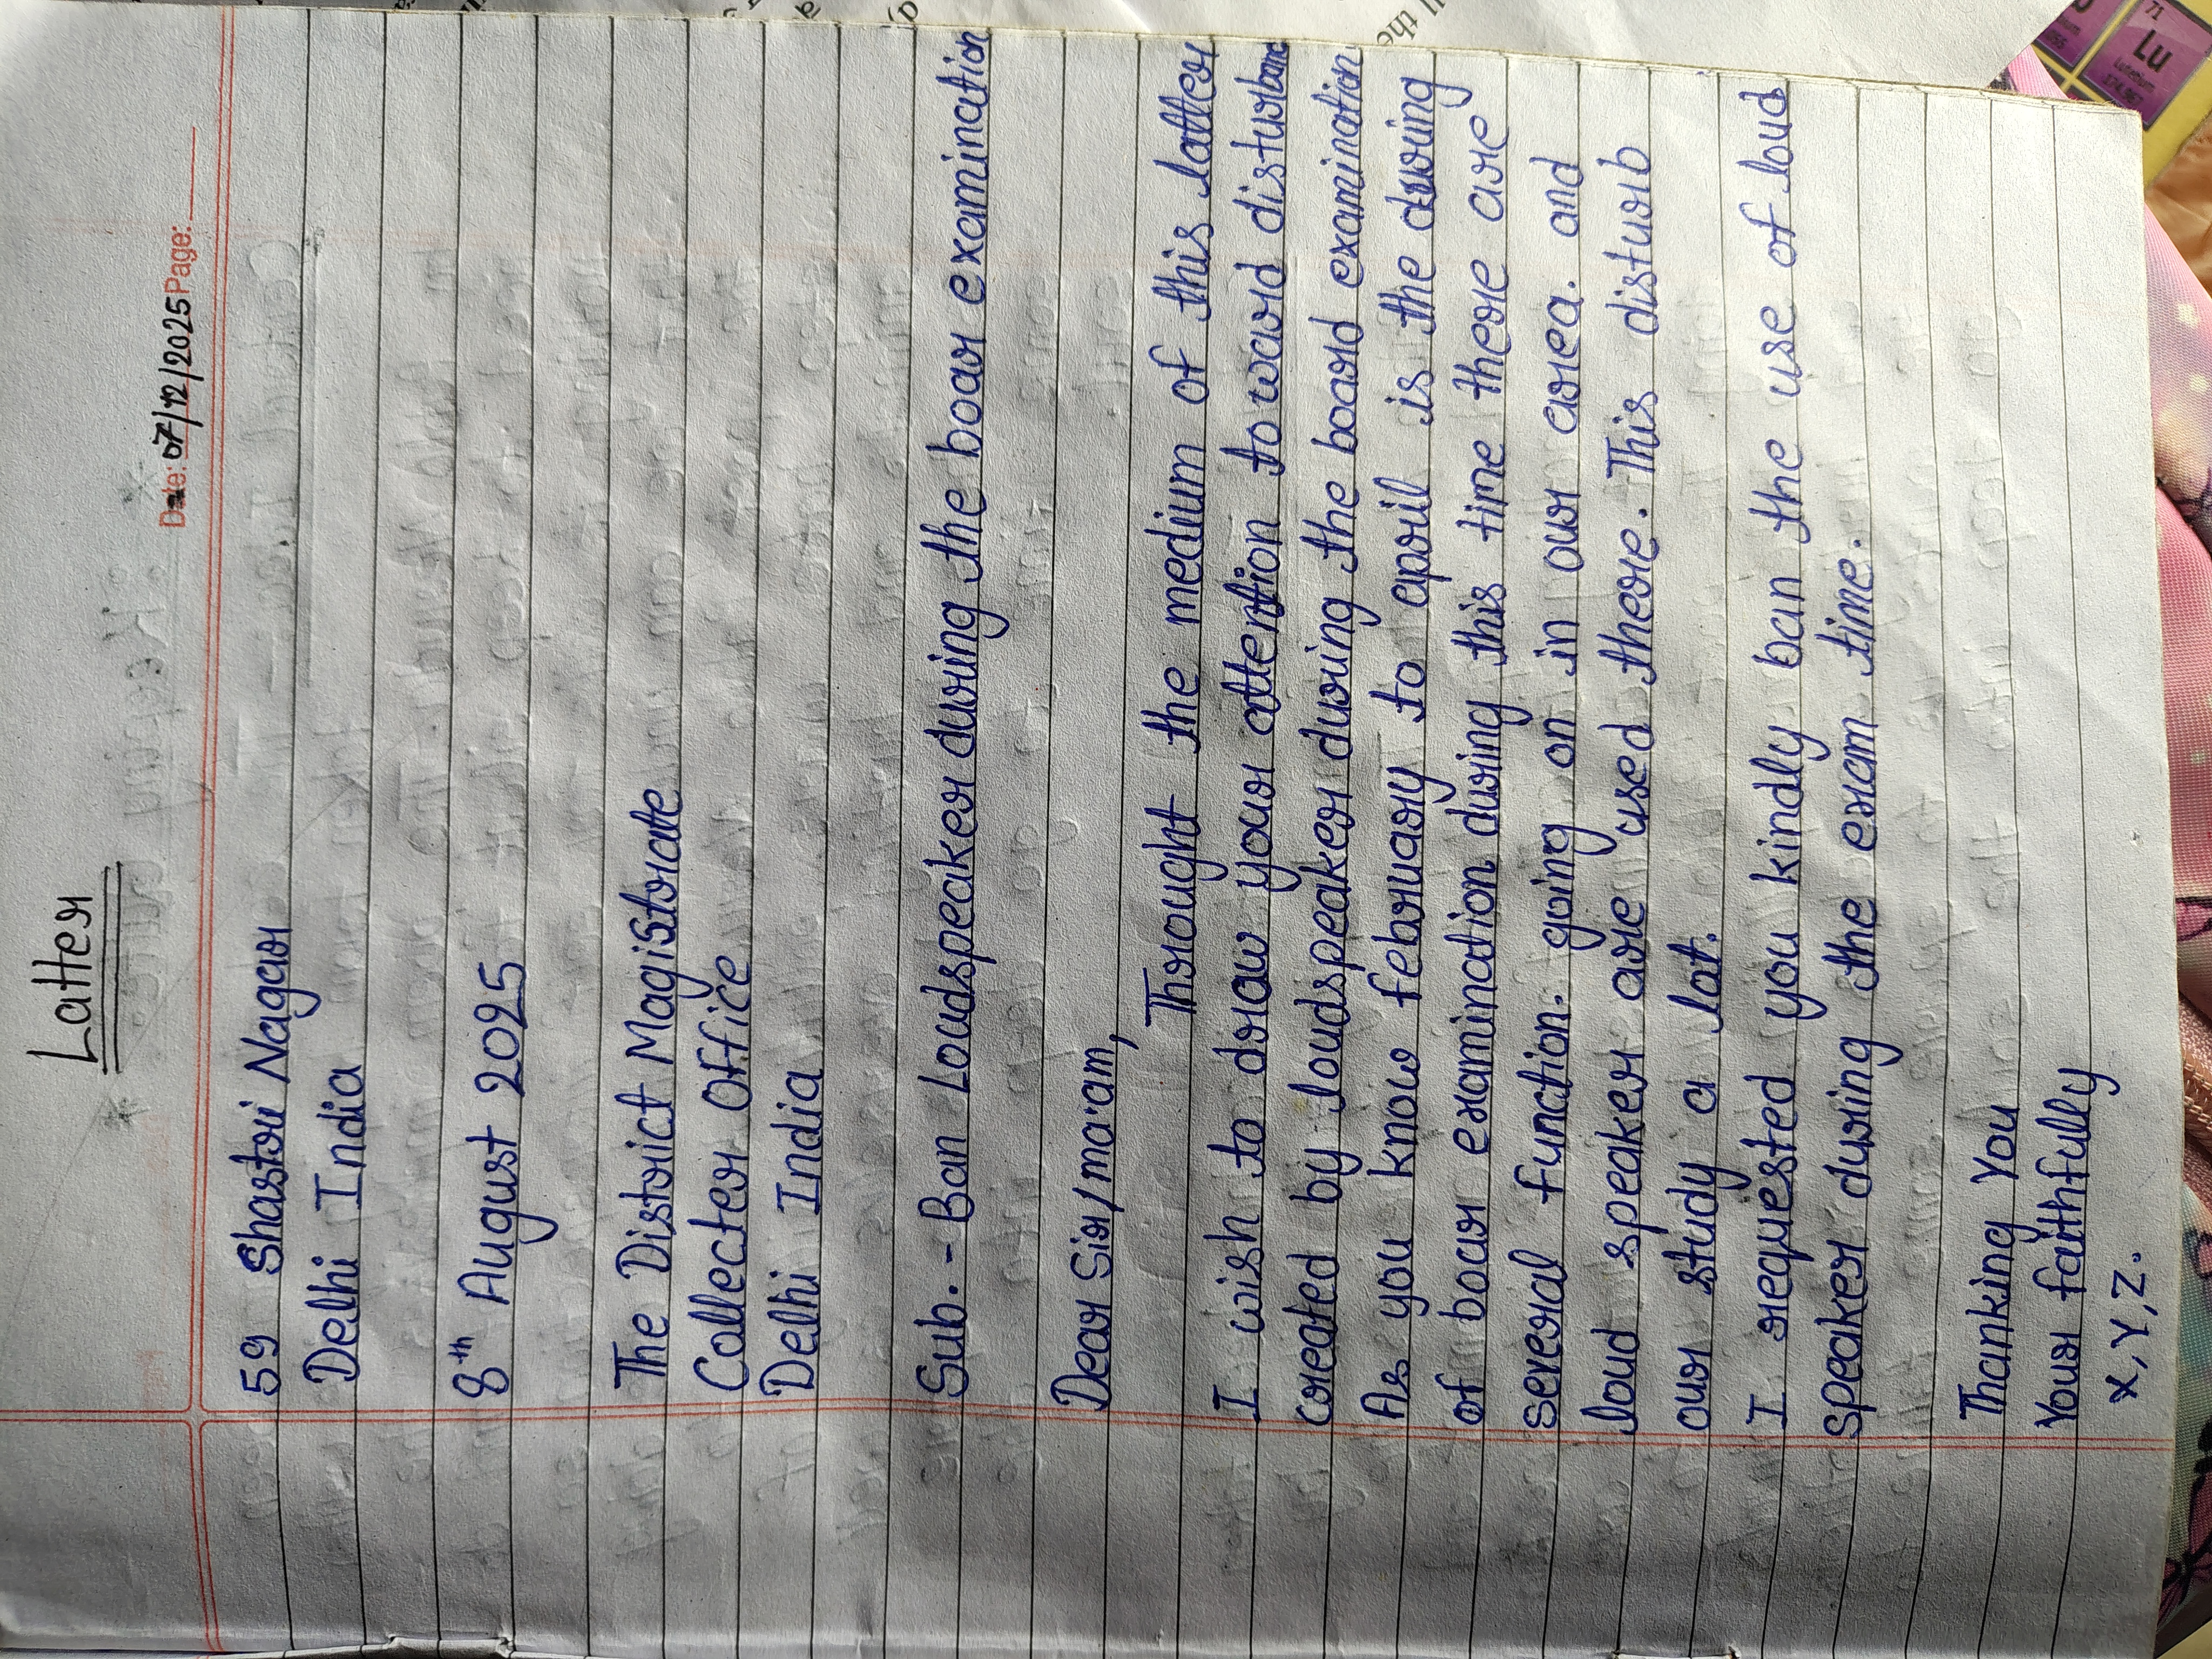 Latter
Date: 07/12/2025 Page:
59 Shastri Nagar
Delhi India
8th August 2025
The District Magistrate
Collecter Office
Delhi India
Sub. - Ban Loudspeaker during the boar examination
Dear Sir/ma'am,
Throught the medium of this latter
I wish to draw your attention toward disturbanc
created by loudspeaker during the board examination
As you know february to april is the during
of boar examination during this time there are
several function. going on in our area. and
loud speaker are used there. This disturb
our study a lot.
I requested you kindly ban the use of loud
speaker during the exam time.
Thanking You
Your faithfully
X, Y, Z.
71
Lu
Lutetium